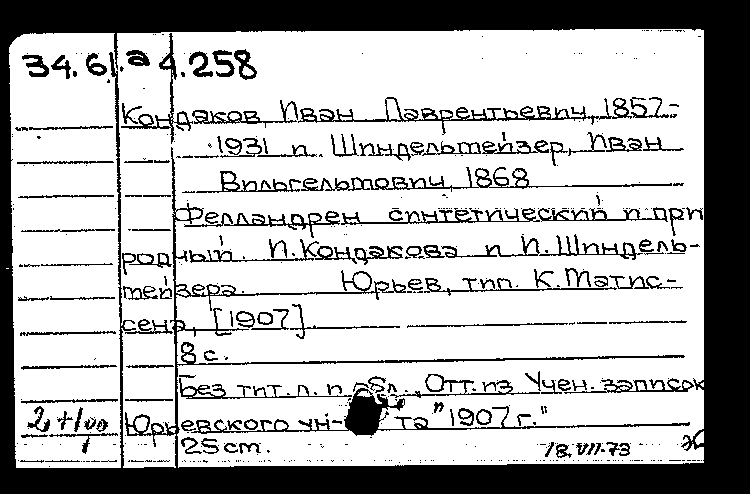 34.61.а 4.258
Кондаков, Иван Лаврентьевич, 1857-
1931 и Шпндельмейзер, Иван
Вильгельмович, 1868
Фелландрен синтетический и при
родный. И. Кондакова и И. Шиндель-
мейзера. Юрьев, тип. К. Матис-
сена, [1907].
8 с.
Без тит. л. и обл., Отт. из Учен. записок
Юрьевского ун- та "1907 г."
25 cm. 18.VII.73